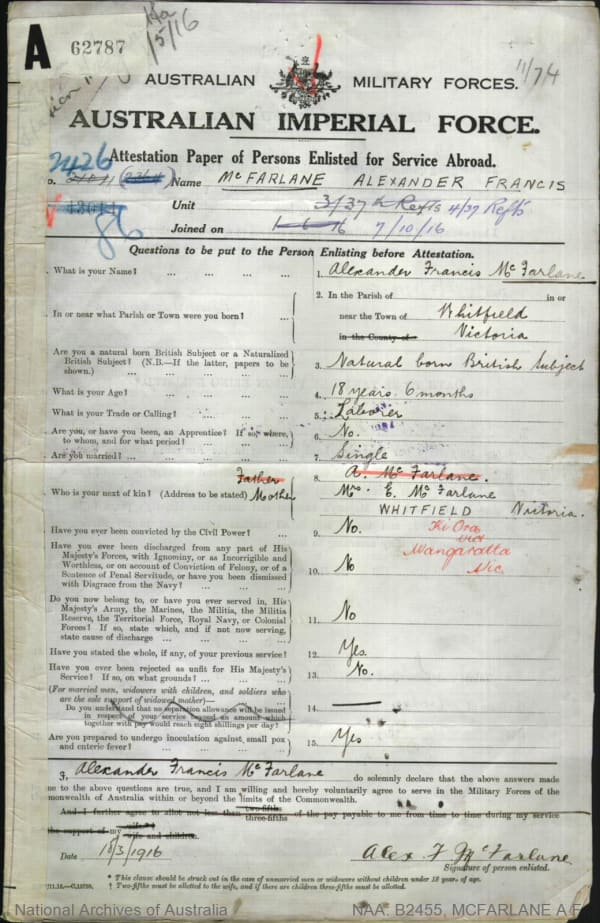 A 62787
5/16
11/74
AUSTRALIAN MILITARY FORCES.
AUSTRALIAN IMPERIAL FORCE.
Attestation Paper of Persons Enlisted for Service Abroad.
2426
Name McFARLANE ALEXANDER FRANCIS
Unit 3/37th Refts 4/37 Refts
86
Joined on 1-6-16 7/10/16
Questions to be put to the Person Enlisting before Attestation.
What is your Name? ... ... ... 1. Alexander Francis McFarlane
2. In the Parish of in or
In or near what Parish or Town were you born? ... near the Town of Whitfield
in the County of Victoria
Are you a natural born British Subject or a Naturalized
British Subject? (N.B.—If the latter, papers to be
shown.) ... ... ... 3. Natural born British Subject
What is your Age? ... ... ... 4. 18 years 6 months
What is your Trade or Calling? ... ... 5. Laborer
Are you, or have you been, an Apprentice? If so, where,
to whom, and for what period? ... ... 6. No.
Are you married? ... ... ... 7. Single
Father 8. A. McFarlane.
Who is your next of kin? (Address to be stated) Mother Mrs. E. McFarlane
WHITFIELD Victoria.
Have you ever been convicted by the Civil Power? ... 9. No.
Ki Ora
via
Wangaratta
Vic.
Have you ever been discharged from any part of His
Majesty's Forces, with Ignominy, or as Incorrigible and
Worthless, or on account of Conviction of Felony, or of a
Sentence of Penal Servitude, or have you been dismissed
with Disgrace from the Navy? ... ... 10. No
Do you now belong to, or have you ever served in, His
Majesty's Army, the Marines, the Militia, the Militia
Reserve, the Territorial Force, Royal Navy, or Colonial
Forces? If so, state which, and if not now serving,
state cause of discharge ... ... ... 11. No
Have you stated the whole, if any, of your previous service? 12. Yes.
Have you ever been rejected as unfit for His Majesty's
Service? If so, on what grounds? ... ... 13. No.
(For married men, widowers with children, and soldiers who
are the sole support of widowed mother)—
Do you understand that no separation allowance will be issued
in respect of your service beyond an amount which
together with pay would reach eight shillings per day? 14. —
Are you prepared to undergo inoculation against small pox
and enteric fever? ... ... ... 15. Yes
I, Alexander Francis McFarlane do solemnly declare that the above answers made
me to the above questions are true, and I am willing and hereby voluntarily agree to serve in the Military Forces of the
monwealth of Australia within or beyond the limits of the Commonwealth.
And I further agree to allot not less than two-fifths three-fifths of the pay payable to me from time to time during my service
the support of my wife wife and children.
Date /3/1916 Alex. F. McFarlane
Signature of person enlisted.
* This clause should be struck out in the case of unmarried men or widowers without children under 18 years of age.
† Two-fifths must be allotted to the wife, and if there are children three-fifths must be allotted.
National Archives of Australia NAA: B2455, MCFARLANE A F